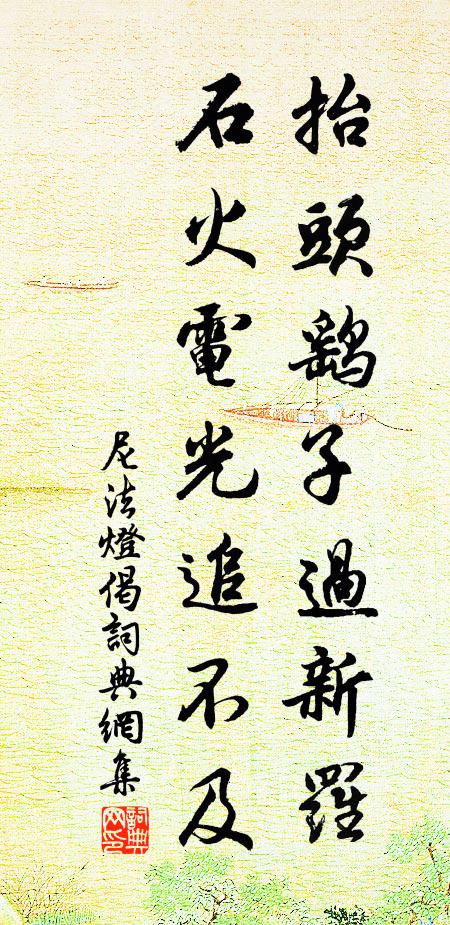 抬頭鷂子過新羅
石火電光追不及
尼法燈偈詞典網集
詞典網印